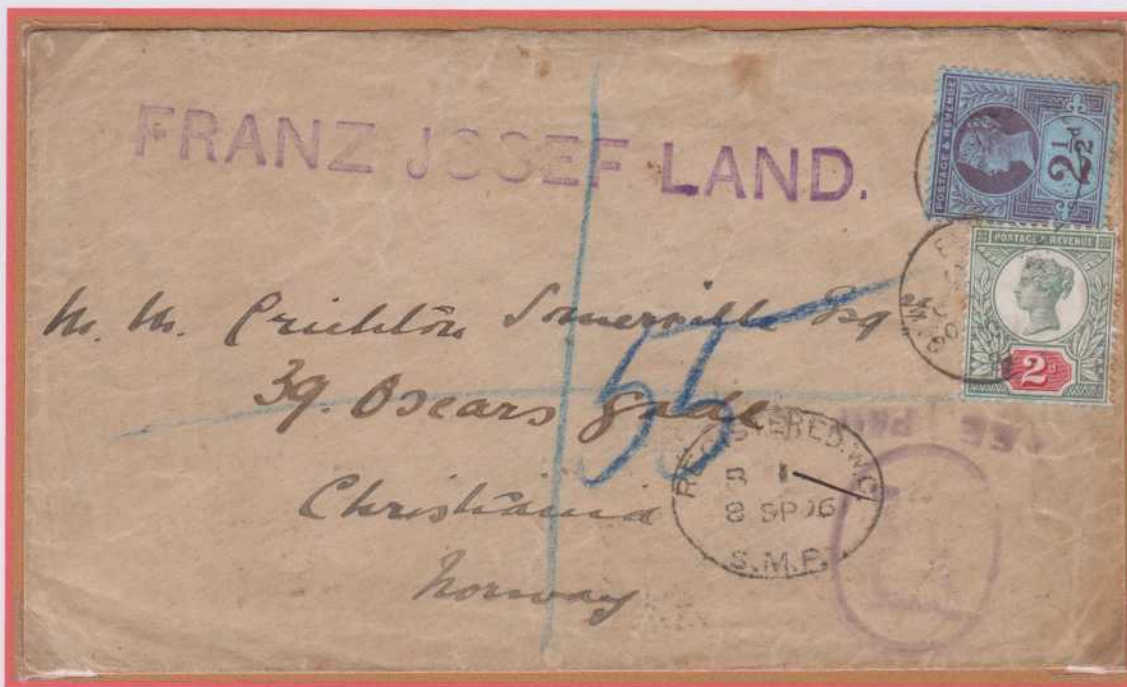 FRANZ JOSEF LAND.
POSTAGE & REVENUE
2½d
POSTAGE & REVENUE
2d
M. M. Crichton Somerville Esq
39. Oscars gade
55
Christiania
Norway
REGISTERED.W.C.
8 SP 96
S.M.P.
FEE PAID